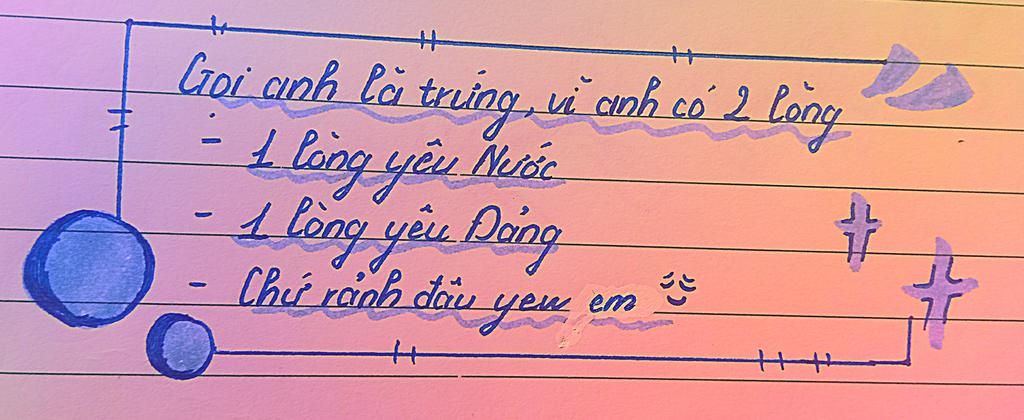 Gọi anh là trứng, vì anh có 2 lòng
- 1 lòng yêu Nước
- 1 lòng yêu Đảng
- Chứ rảnh đâu yew em